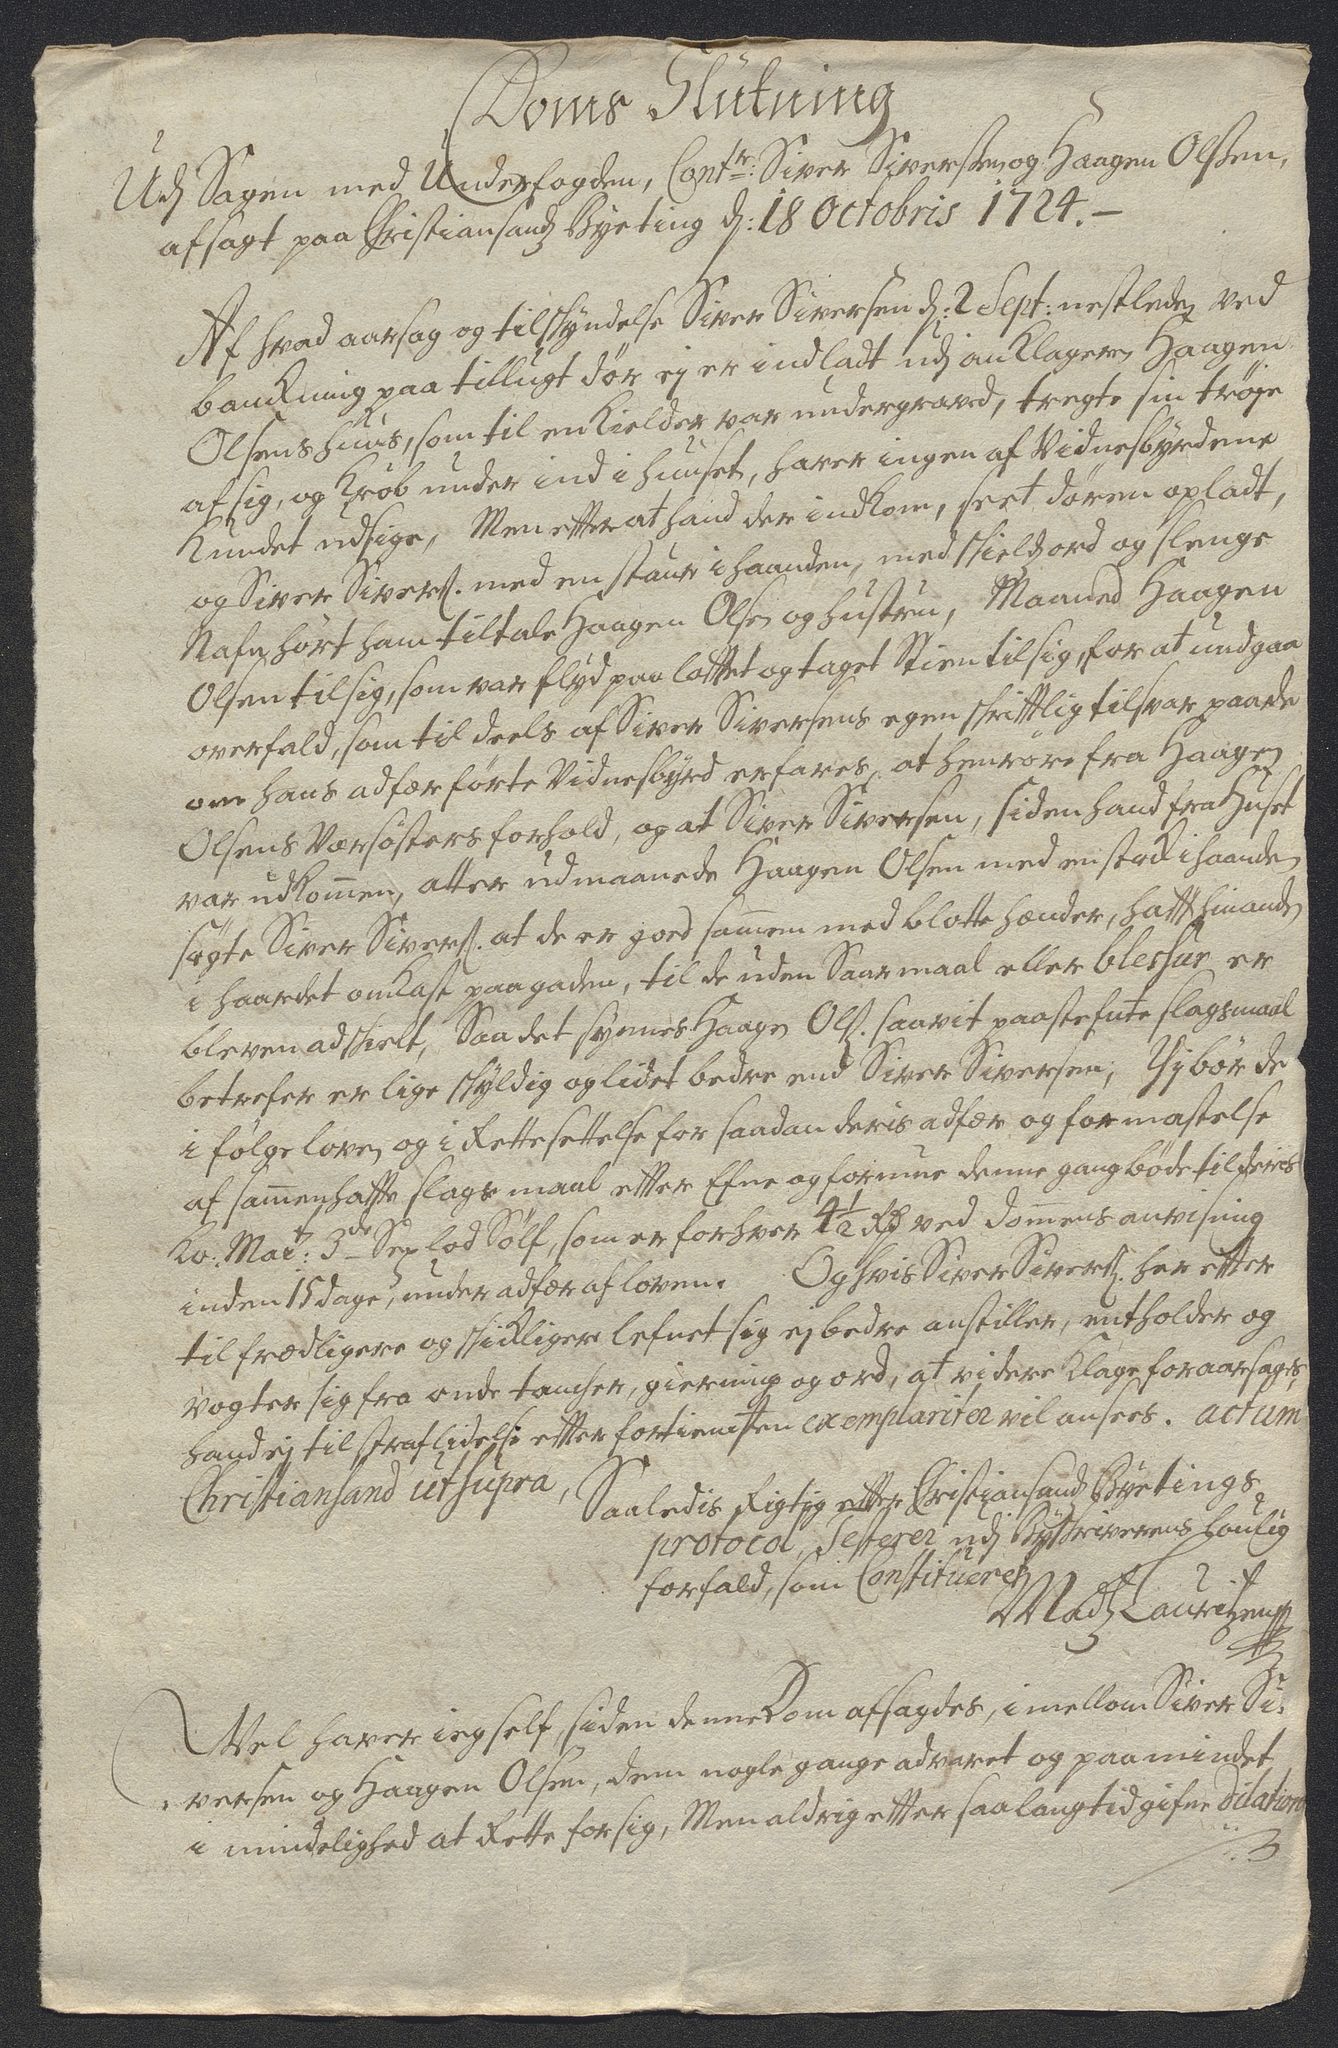 Doms Slutning
Udj Sagen med Underfogden, Contr: Siver Siversen, og Haagen Olsen,
afsagt paa Christiansands Byeting d: 18 Octobris 1724.–
Af hvad aarsag og tilskyndelse Siver Siversen d: 2 Sept: nestleden ved
banckning paa tillugt dør ej er indladt udj anklageren Haagen
Olsens huus, som til en Kielder var undergraved, tregte sin trøje
af sig, og Krøb under ind i huuset, haver ingen af Vidnesbyrdene
Kundet udsige, Men etter at hand der indkom, seet døren opladt,
og Siver Sivers. med en staur i haanden, med skields ord og slenge
Nafn hørt ham tiltale Haagen Olsen og hustru, Maaned Haagen
Olsen til sig, som var flyd paa lottet og taget Stien til sig, for at undgaa
overfald, som til deels af Siver Siversens egen skrittlig tilsvar paa de
om hans adfær førte Vidnesbyrd erfares, at henrøre fra Haagen
Olsens Værsøsters forhold, og at Siver Siversen, siden hand fra Huset
var udkommen, atter udmaanede Haagen Olsen med en stok i haanden
søgte Siver Sivers. at de er goed sammen med blotte hænder, hatt hinanden
i haardet omkast paa gaden, til de uden Saarmaal eller blessur er
bleven adskielt, Saa det synnes Haagen Ols. saavit paastefnte slagsmaal
betrefer er lige skyldig og lidet bedre end Siver Siversen; Thj bør de
i følge loven og i Rettesettelse for saadan deris adfær og formastelse
af sammenhatte slagsmaal etter Efne og formue denne gang bøde til deris
Ko: Mayt: 3de Sex lod Sølf, som er for hver 4½ Rd ved dommens anvisning
inden 15 dage, under adfær af loven. Og hvis Siver Sivers. her etter
til frædligere og skickligere lefnet sig ej bedre anstiller, entholder og
vogter sig fra onde tancher, gierning og ord, at videre Klage foraarsages,
hand ej til straflidelse etter fortienisten exemplariter vil ansees. actum
Christiansand ut supra,
Saaledis Rigtig etter Christiansands Byetings
protocol, Testerer udj Byskriverens lovlig
forfald, som Constitueret
Mads Lauritzen
Vel haver ieg self, siden denne Dom afsagdes, imellom Siver Si-
versen og Haagen Olsen, dem nogle gange advaret og paamindet
i mindelighed at Rette for sig, Men aldrig etter saa lang tid gifne dilation